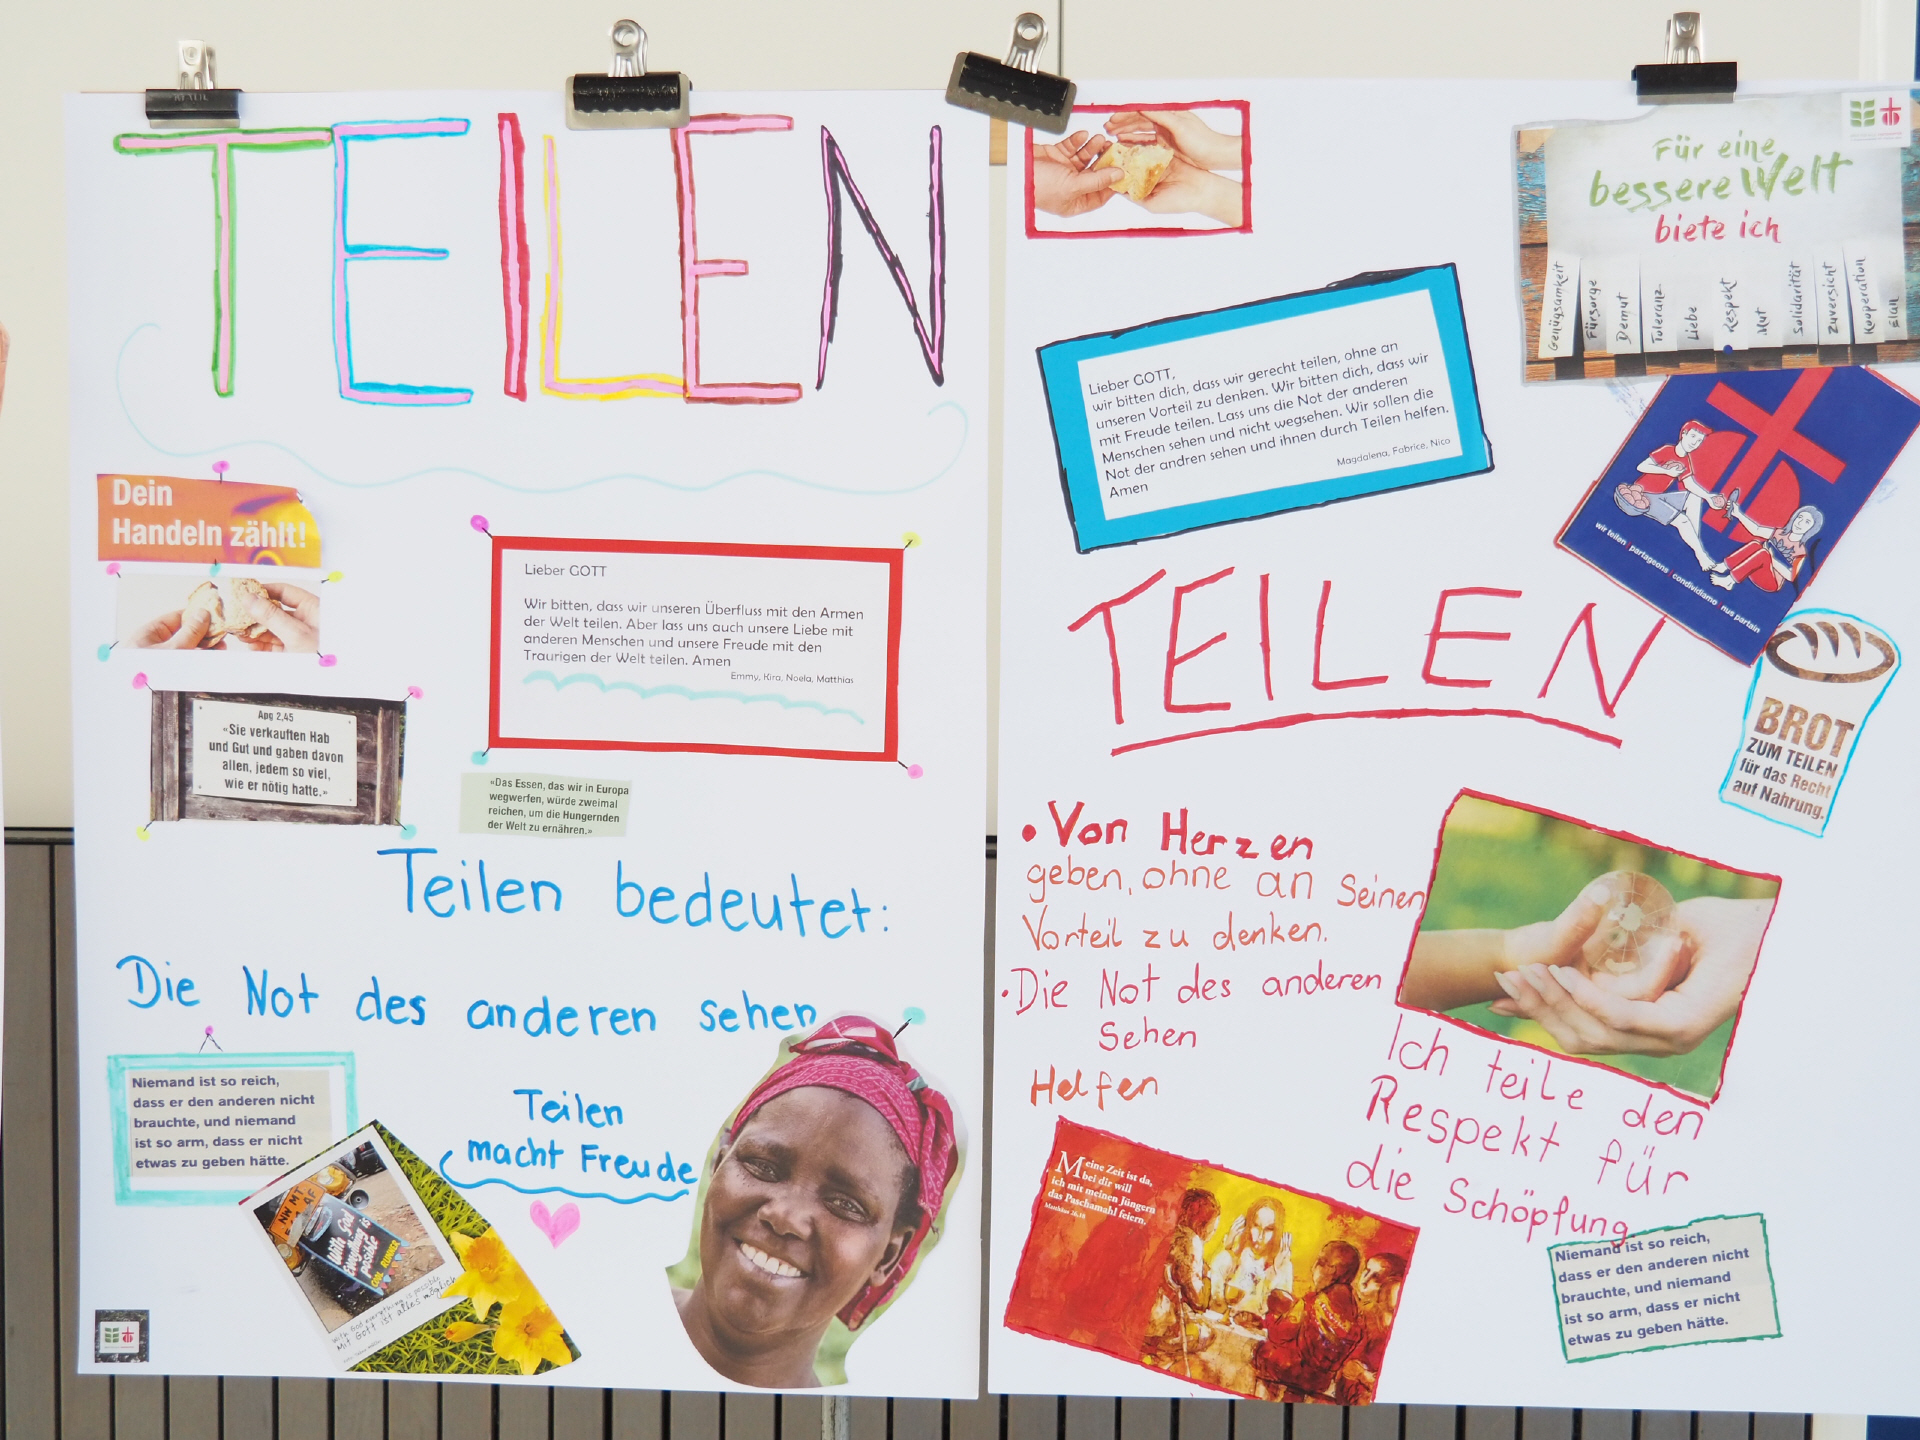 TEILEN
Dein
Handeln zählt!
Apg 2,45
«Sie verkauften Hab
und Gut und gaben davon
allen, jedem so viel,
wie er nötig hatte.»
Lieber GOTT
Wir bitten, dass wir unseren Überfluss mit den Armen
der Welt teilen. Aber lass uns auch unsere Liebe mit
anderen Menschen und unsere Freude mit den
Traurigen der Welt teilen. Amen
Emmy, Kira, Noela, Matthias
«Das Essen, das wir in Europa
wegwerfen, würde zweimal
reichen, um die Hungernden
der Welt zu ernähren.»
Teilen bedeutet:
Die Not des anderen sehen
Niemand ist so reich,
dass er den anderen nicht
brauchte, und niemand
ist so arm, dass er nicht
etwas zu geben hätte.
Teilen
macht Freude
NW MT
AF
With God
Everything is
possible
COOL RUNNER
With God everything is possible
Mit Gott ist alles möglich
Für eine
bessere Welt
biete ich
Genügsamkeit
Fürsorge
Demut
Toleranz
Liebe
Respekt
Mut
Solidarität
Zuversicht
Kooperation
Elan
Lieber GOTT,
wir bitten dich, dass wir gerecht teilen, ohne an
unseren Vorteil zu denken. Wir bitten dich, dass wir
mit Freude teilen. Lass uns die Not der anderen
Menschen sehen und nicht wegsehen. Wir sollen die
Not der andren sehen und ihnen durch Teilen helfen.
Magdalena, Fabrice, Nico
Amen
wir teilen partageons condividiamo nus partain
TEILEN
BROT
ZUM TEILEN
für das Recht
auf Nahrung.
• Von Herzen
geben, ohne an Seinen
Vorteil zu denken.
• Die Not des anderen
Sehen
Helfen
Ich teile den
Respekt für
die Schöpfung
Meine Zeit ist da,
bei dir will
ich mit meinen Jüngern
das Paschamahl feiern.
Matthäus 26,18
Niemand ist so reich,
dass er den anderen nicht
brauchte, und niemand
ist so arm, dass er nicht
etwas zu geben hätte.